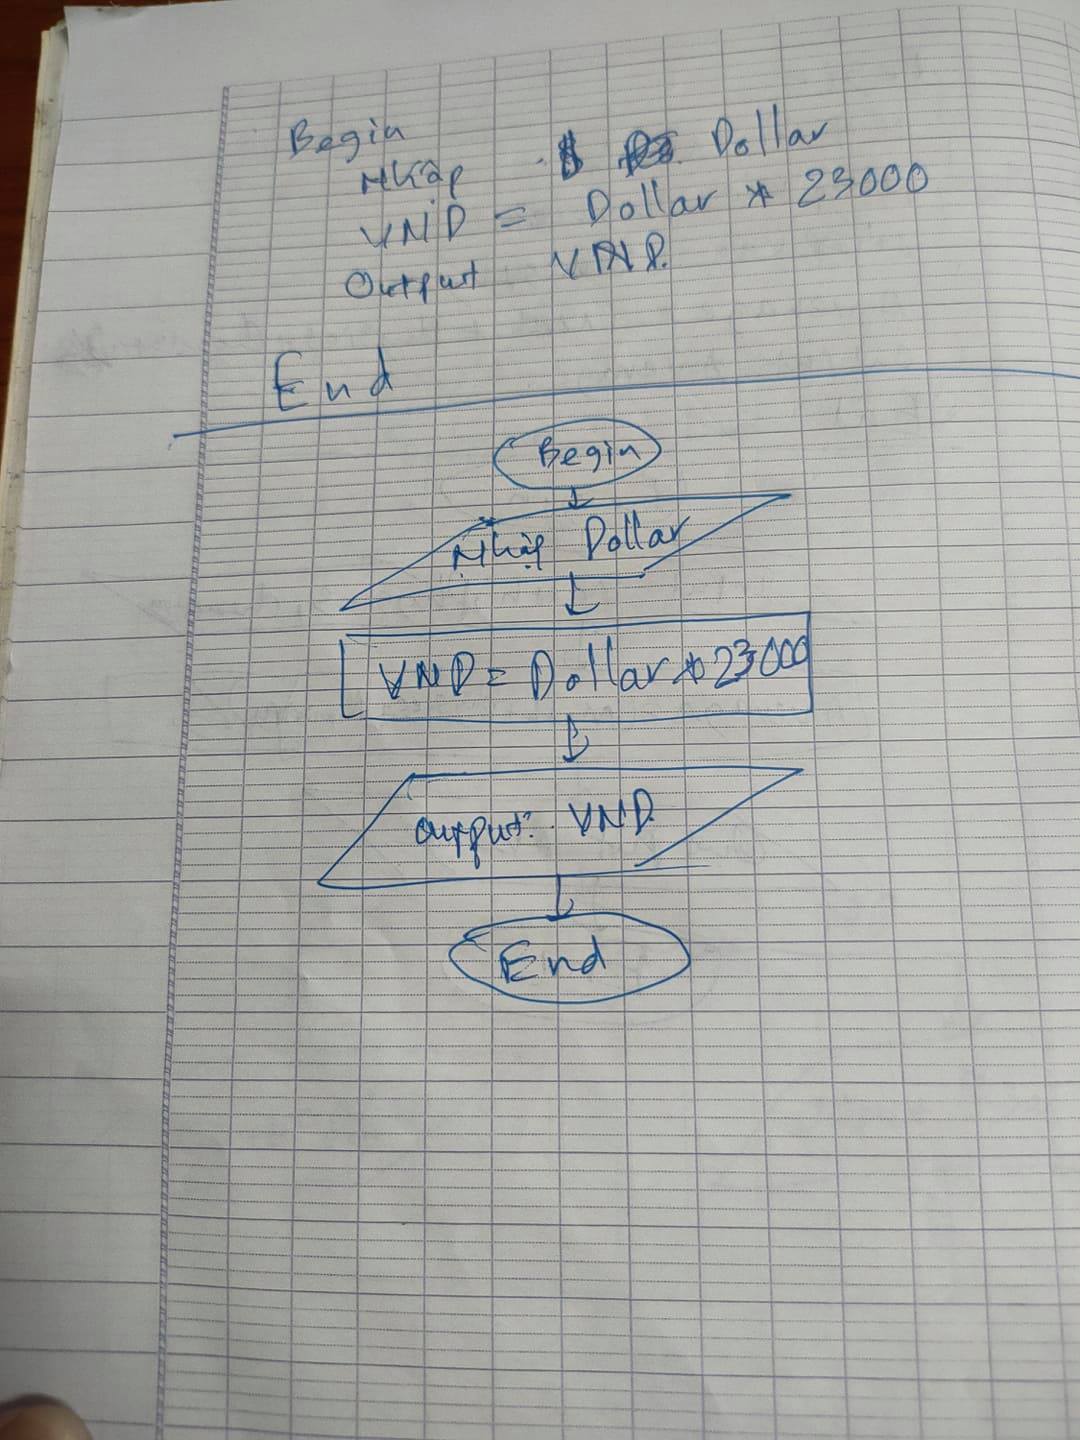 Begin
Nhập Dollar
VND = Dollar * 23000
Output VND.
End
Begin
Nhập Dollar
VND = Dollar * 23000
Output: VND.
End